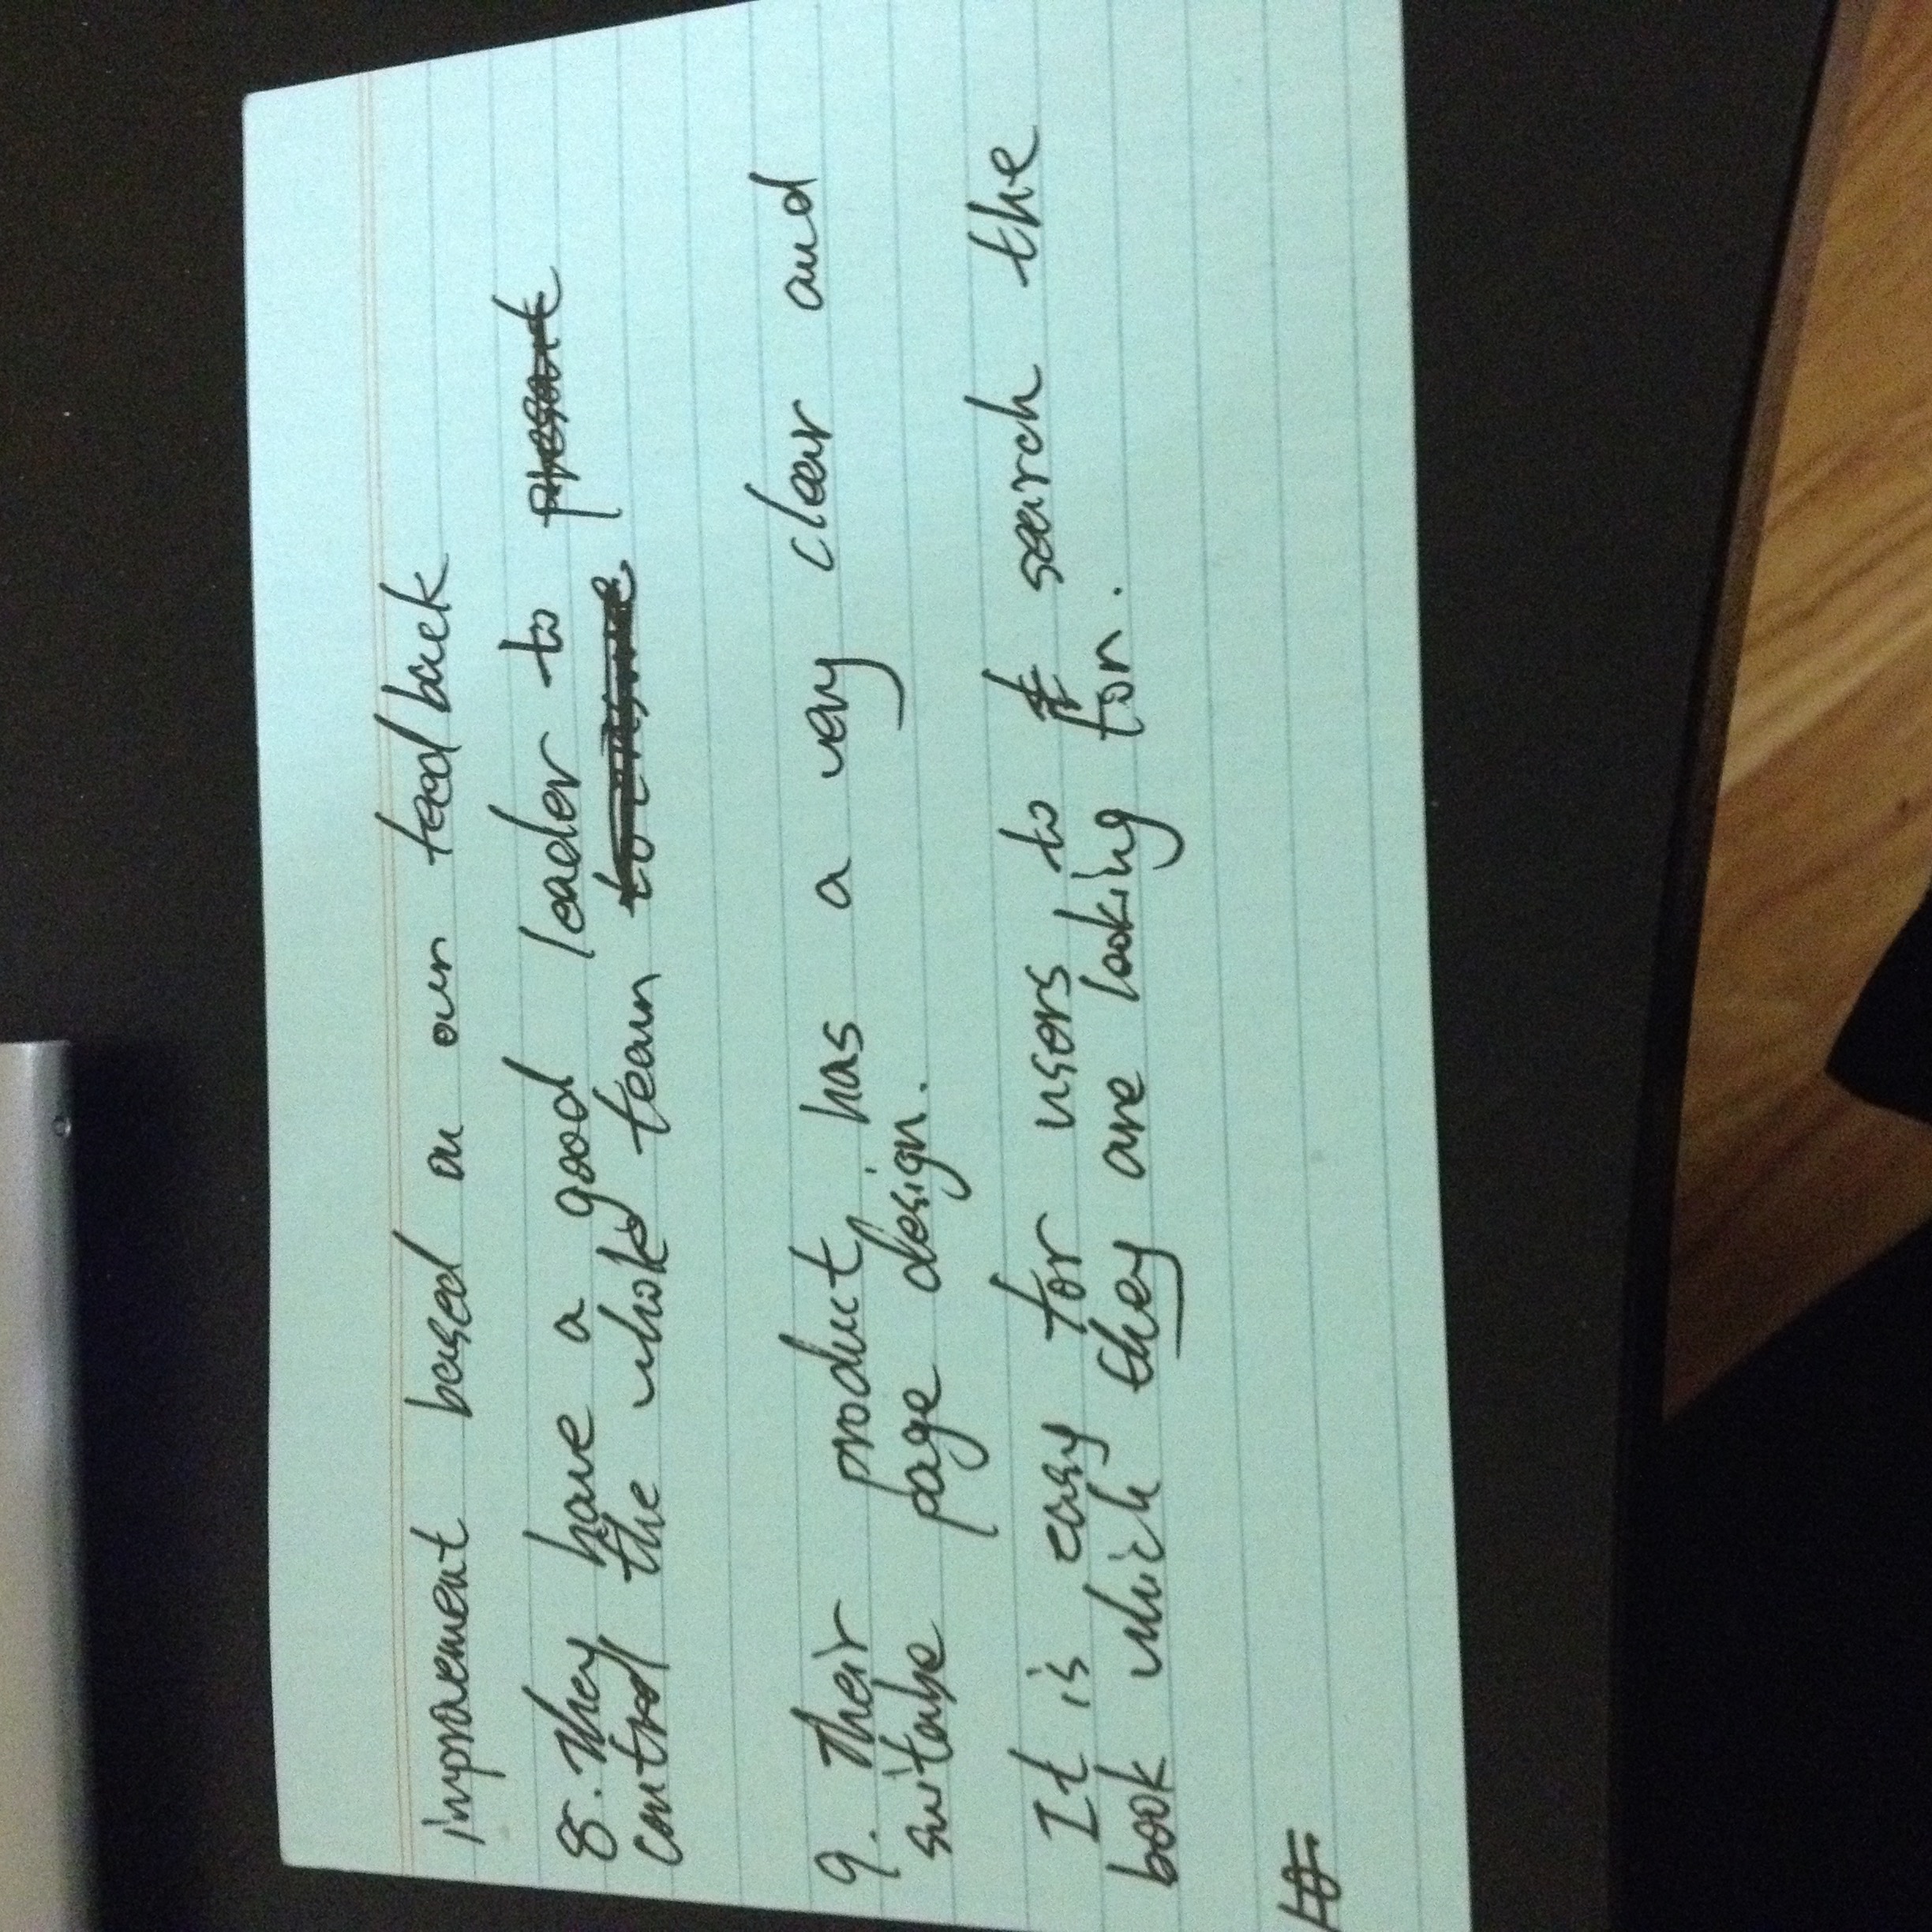 improvement based on our feedback
8. They have a good leader to present
control the whole team to ensure
9. Their product, has a very clear and
suitabe page design.
It is easy for users, to t search the
book which they are looking for.
10